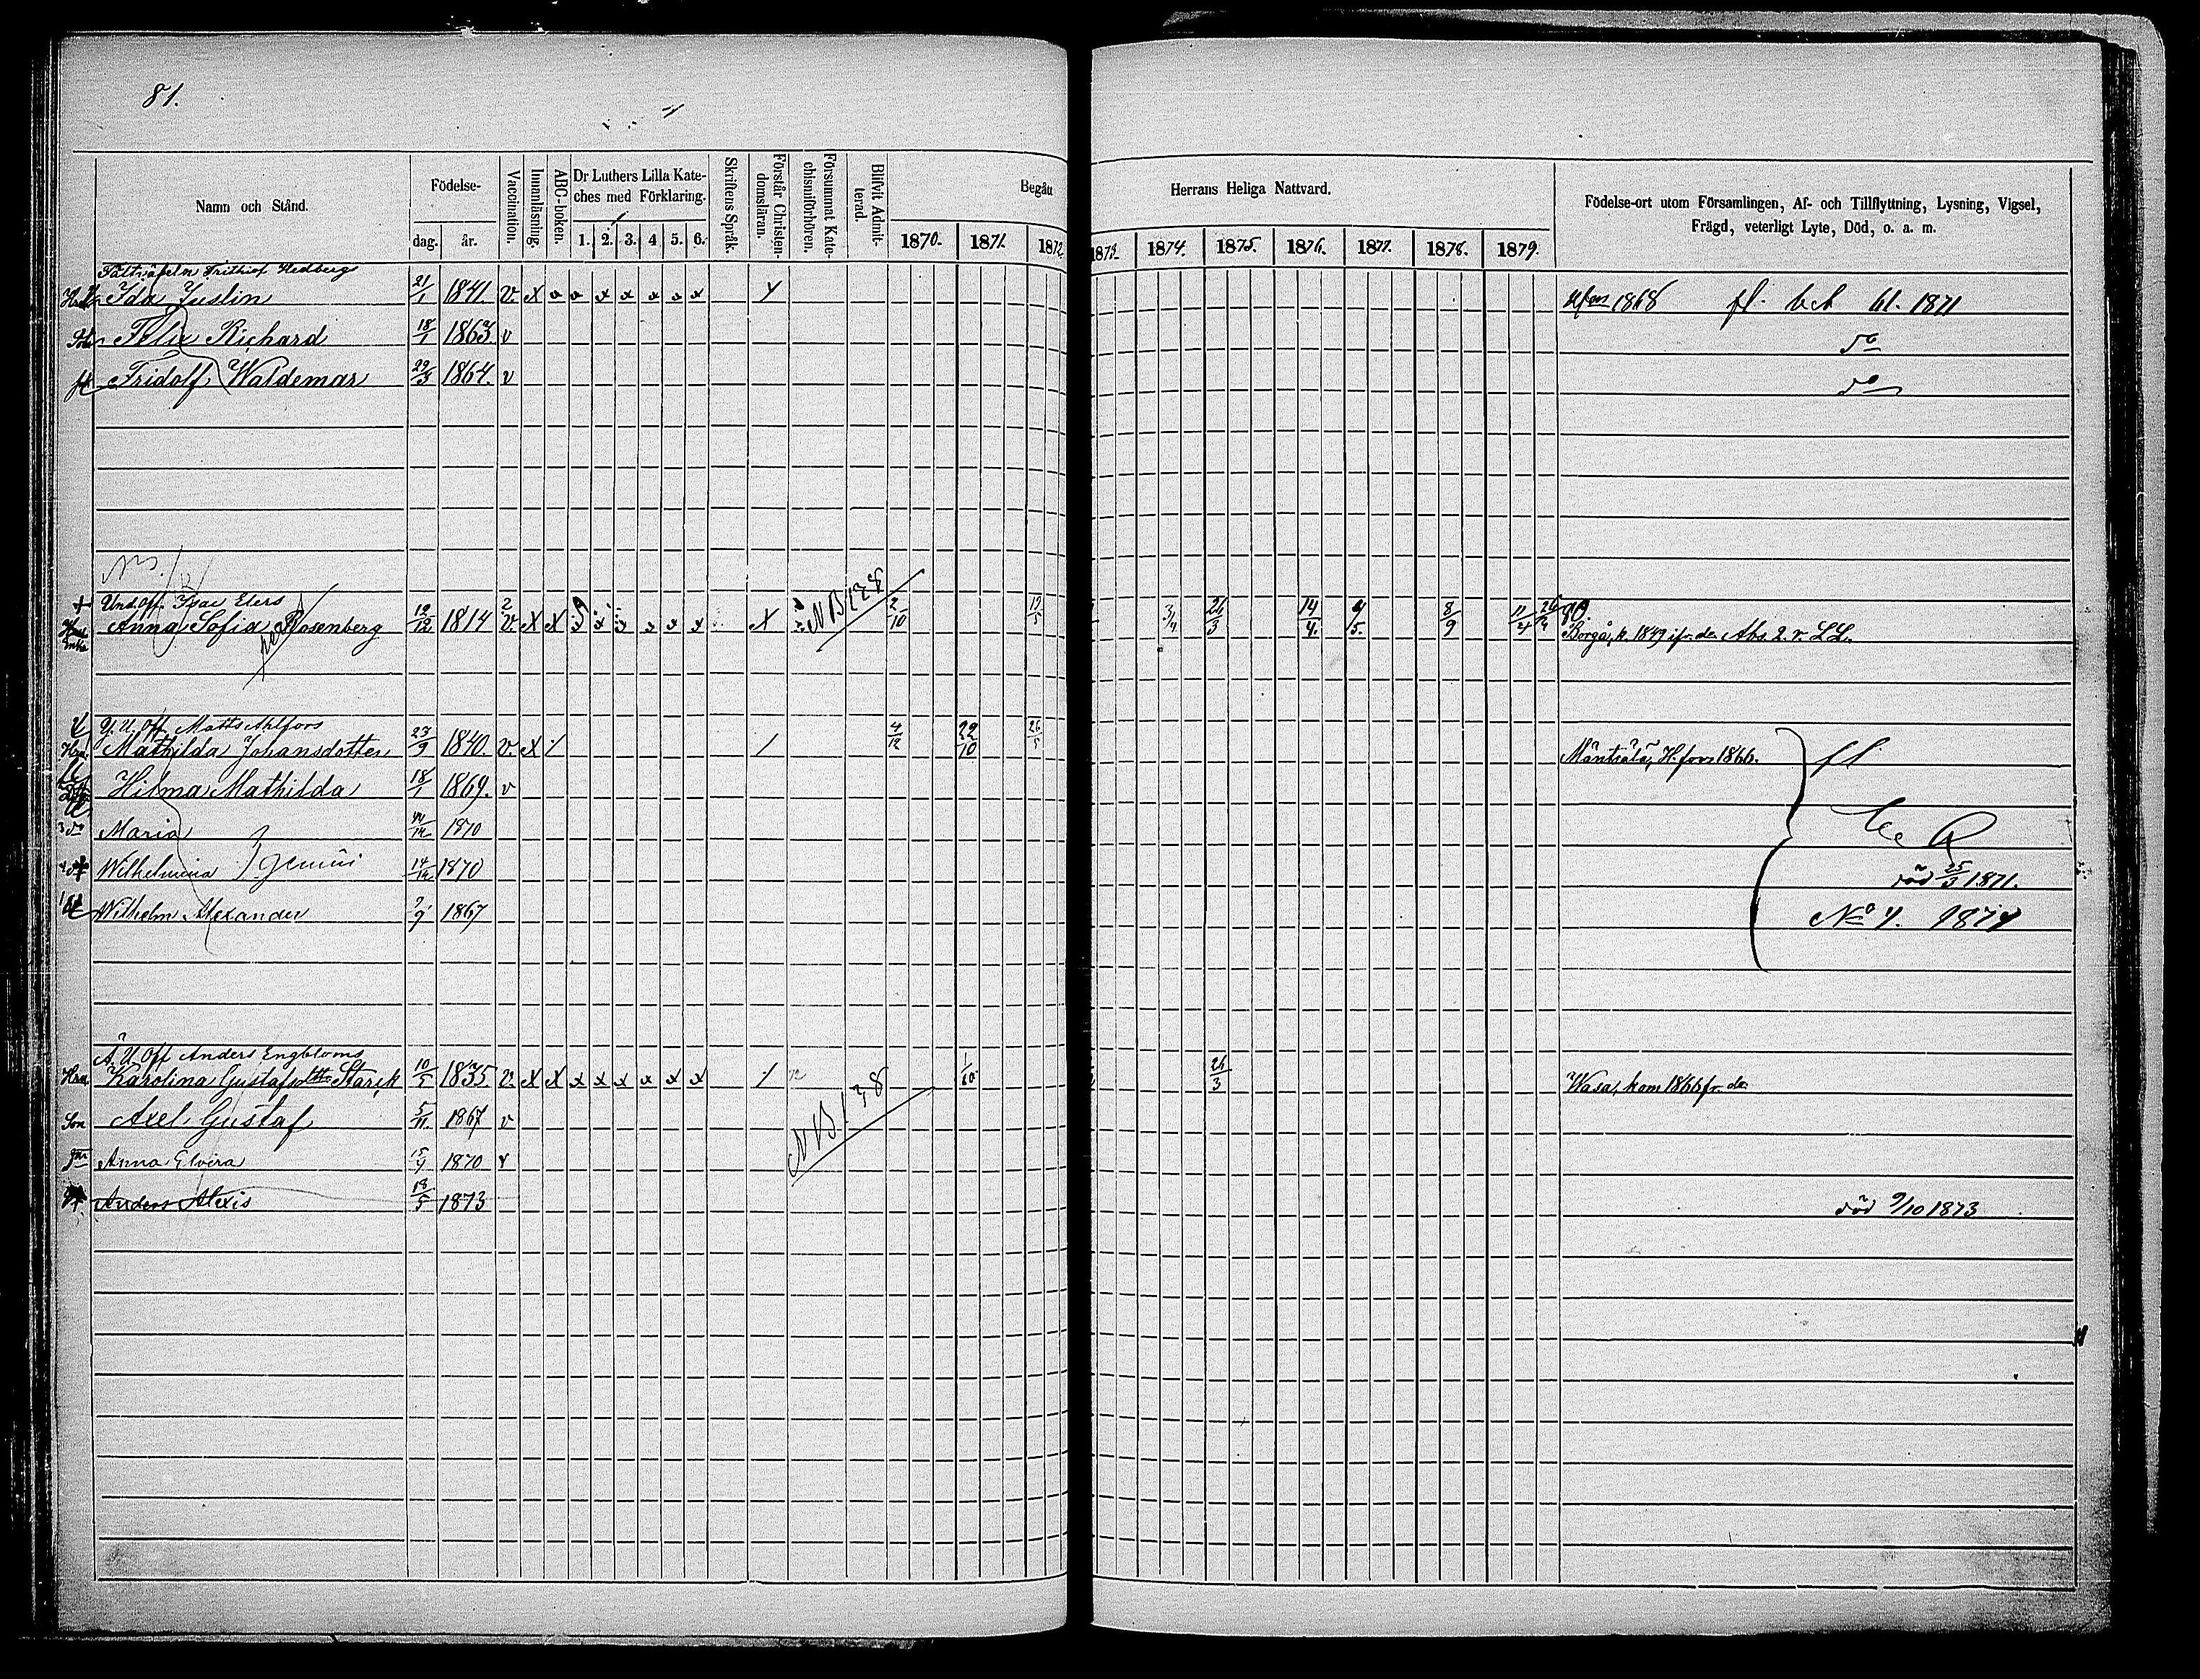 81.
Namn och Stånd.
Födelse-
dag.
år.
Vaccination.
Innanläsning.
ABC-boken.
Dr Luthers Lilla Kate-
ches med Förklaring.
1. 2. 3. 4. 5. 6.
Skriftens Språk.
Förstår Christen-
domsläran.
Försummat Kate-
chismiförhören.
Blifvit Admit-
terad.
Begått
Herrans Heliga Nattvard.
1870. 1871. 1872. 1873. 1874. 1875. 1876. 1877. 1878. 1879.
Födelse-ort utom Församlingen, Af- och Tillflyttning, Lysning, Vigsel,
Frägd, veterligt Lyte, Död, o. a. m.
Frithiof Hedberg
Ida Juslin 21/1 1841. v. x x x x x x x x 1868 fl. bet 61. 1871
Felix Richard 18/1 1863. v do
Fridolf Waldemar 22/3 1864. v do
Und. Off. Isac Elers
Enka Anna Sofia Rosenberg 12/12 1814 v. x x x NB 138 2/10 26/3 14/4. 4/5. 8/9
Borgå, k. 1849 ifr. do Abs. 2. r. LL.
Y. U. Off. Matts Ahlfors
Hru. Mathilda Johansdotter 27/9 1840. v. x / / 4/12 22/10 26/5 Mäntsälä, H.fors 1866.
Hilma Mathilda 18/1 1869. v
do Maria 14/12 1870
Wilhelmina } gemini 14/12 1870 död 25/3 1871.
Wilhelm Alexander 7/9 1867 No 7. 1874
Ä. U. Off Anders Engbloms
Hru. Karolina Gustafsdttr Starck 10/5 1835 v. x x x x x x x x / 1/10 26/3 Wasa, kom 1866 fr. do
Son Axel Gustaf 5/11. 1867 v NB 138
Anna Elvira 15/9 1870 v
Anders Alexis 18/5 1873 död 9/10 1873